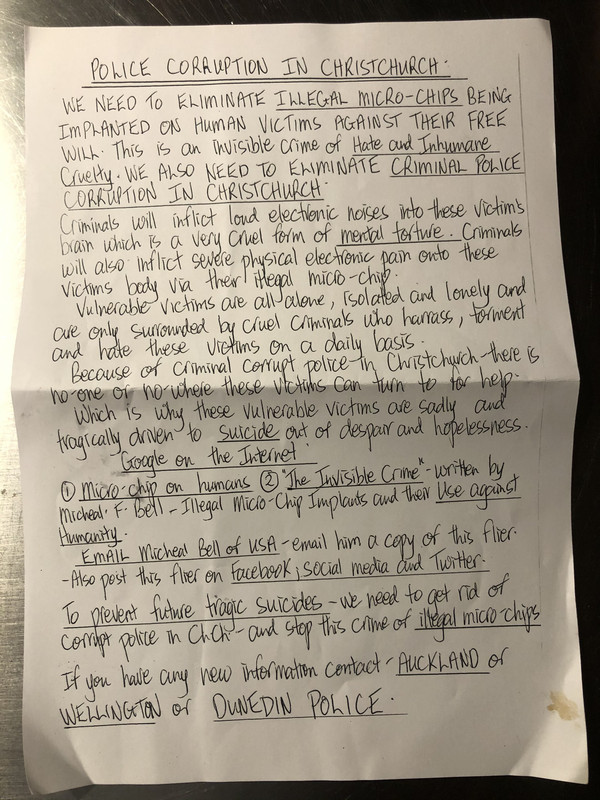 POLICE CORRUPTION IN CHRISTCHURCH.
WE NEED TO ELIMINATE ILLEGAL MICRO-CHIPS BEING
IMPLANTED ON HUMAN VICTIMS AGAINST THEIR FREE
WILL. This is an invisible crime of Hate and Inhumane
Cruelty. WE ALSO NEED TO ELIMINATE CRIMINAL POLICE
CORRUPTION IN CHRISTCHURCH.
Criminals will inflict loud electronic noises into these victim's
brain which is a very cruel form of mental torture. Criminals
will also inflict severe physical electronic pain onto these
victims body via their illegal micro-chip.
Vulnerable victims are all alone, isolated and lonely and
are only surrounded by cruel criminals who harrass, torment
and hate these victims on a daily basis.
Because of criminal corrupt police in Christchurch there is
no-one or no-where these victims can turn to for help.
Which is why these vulnerable victims are sadly and
tragically driven to suicide out of despair and hopelessness.
Google on the Internet
① Micro-chip on humans ② "The Invisible Crime" - written by
Micheal. F. Bell - Illegal Micro-Chip Implants and their Use against
Humanity.
EMAIL Micheal Bell of USA - email him a copy of this flier.
- Also post this flier on Facebook; social media and Twitter.
To prevent future tragic suicides - we need to get rid of
corrupt police in ChCh - and stop this crime of illegal micro-chips
If you have any new information contact - AUCKLAND or
WELLINGTON or DUNEDIN POLICE.